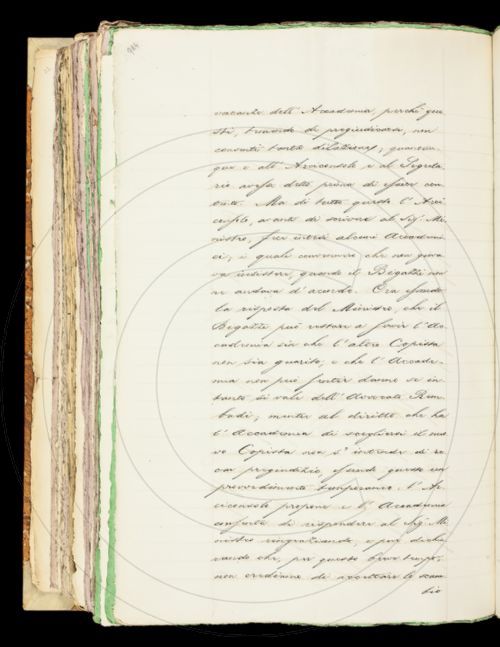 vacante dell' Accademia, perchè que
sti, temendo di pregiudicarsi, non
consentì tanta dilazione; quantun
que e all' Arciconsolo e al Segreta
rio avesse detto prima di esser con
tento. Ma di tutto questo l' Arci
consolo, avanti di scrivere al Sig. Mi
nistro, fece intesi alcuni Accademi
ci, i quali convennero che non giova
va insistere, quando il Bigazzi non
ne andava d' accordo. Ora essendo
la risposta del Ministro, che il
Bigazzi può restare a servir l' Ac
cademia sin che l' altro Copista
non sia guarito, e che l' Accade
mia non può sentir danno se in
tanto si vale dell' Avvocato Rem
badi; mentre al diritto che ha
l' Accademia di scegliersi il nuo
vo Copista non s' intende di re
car pregiudizio, essendo questo un
provvedimento temporaneo; l' Ar
ciconsolo propone e l' Accademia
conforta di rispondere al Sig. Mi
nistro ringraziando, e pur dichia
rando che, per questo breve tempo,
non crediamo di accettare lo scam
bio